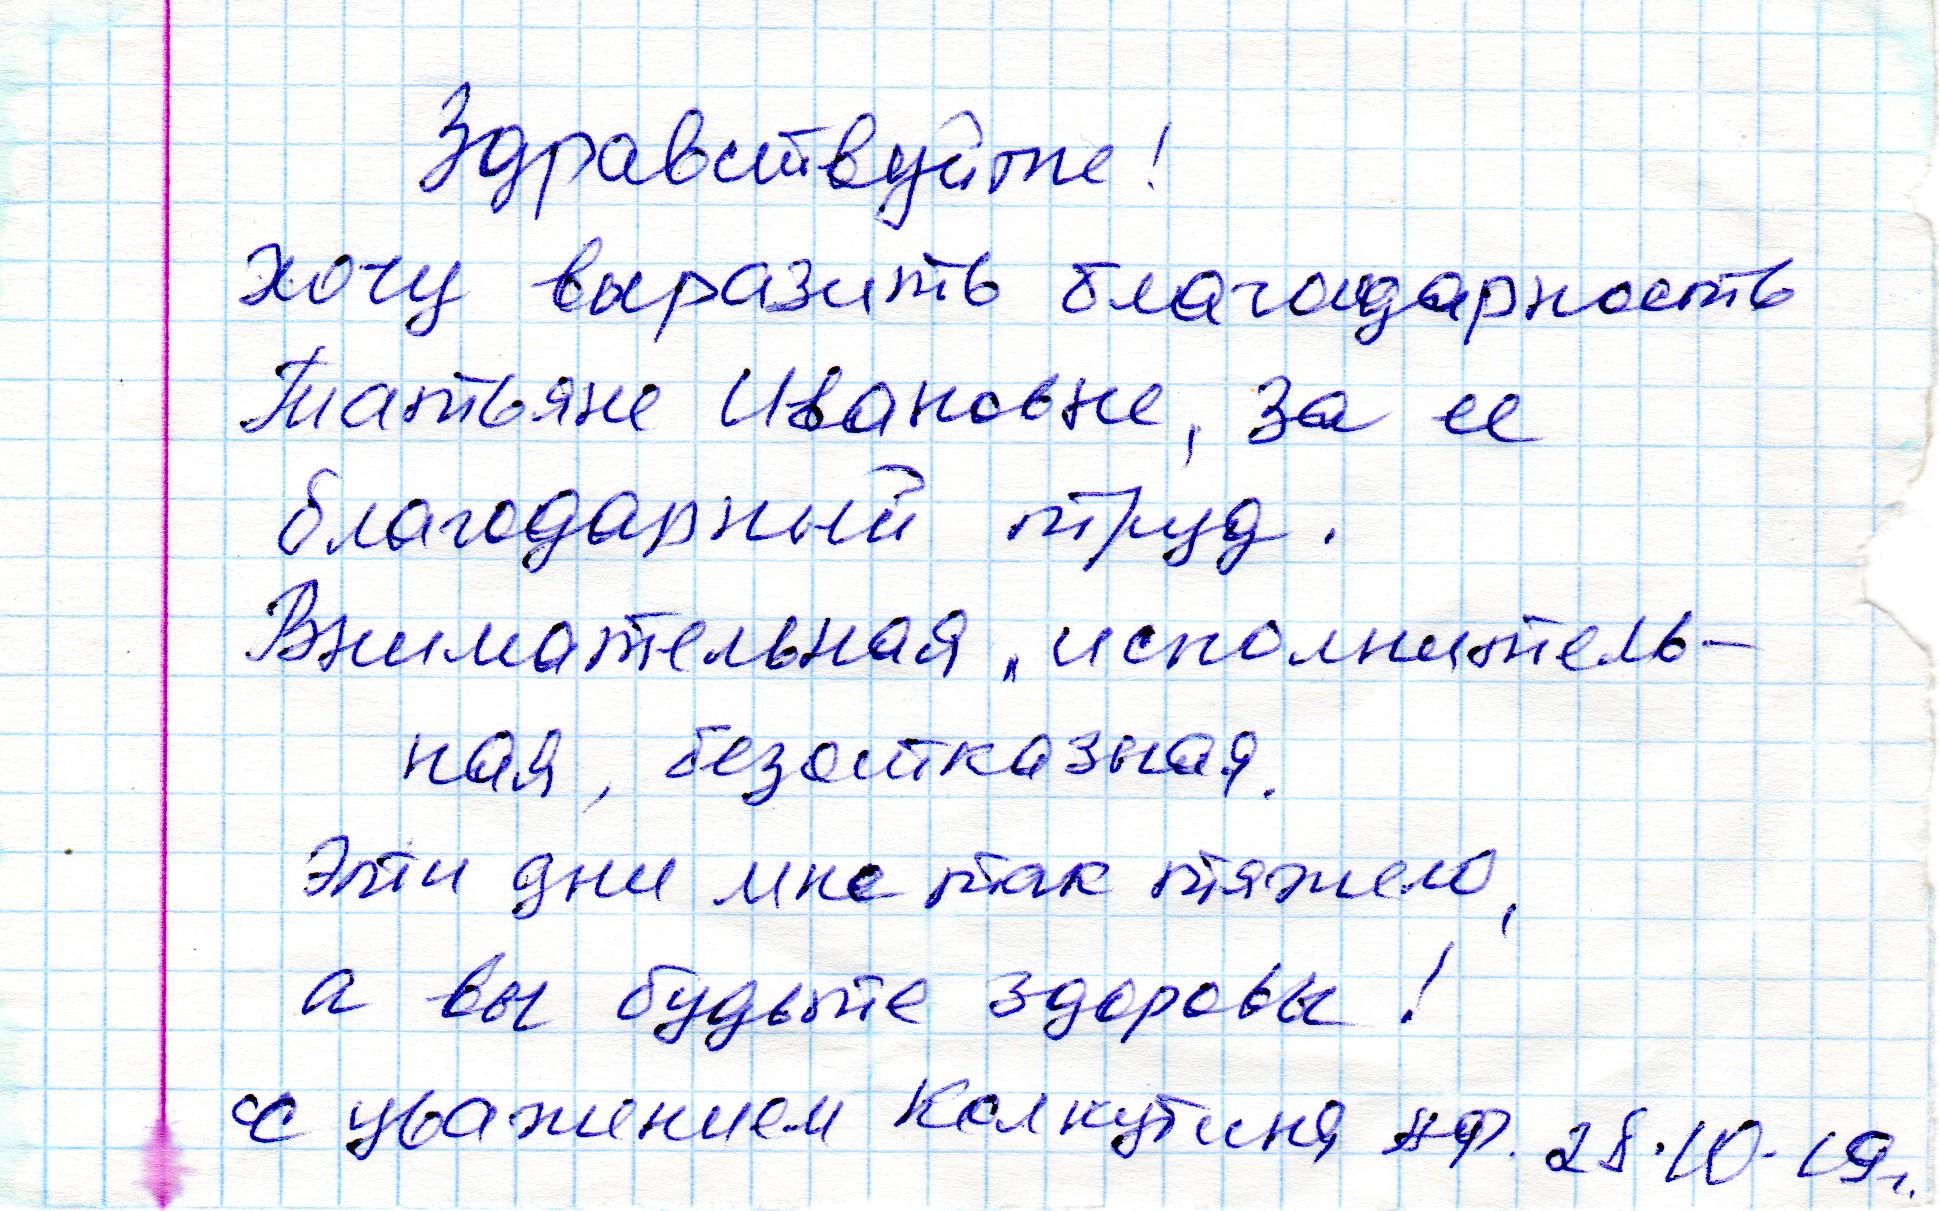 Здравствуйте!
хочу выразить благодарность
Татьяне Ивановне, за ее
благодарный труд.
Внимательная, исполнитель-
ная, безотказная.
Эти дни мне так тяжело,
а вы будьте здоровы!
С уважением Колкутина НФ. 28.10.19г.